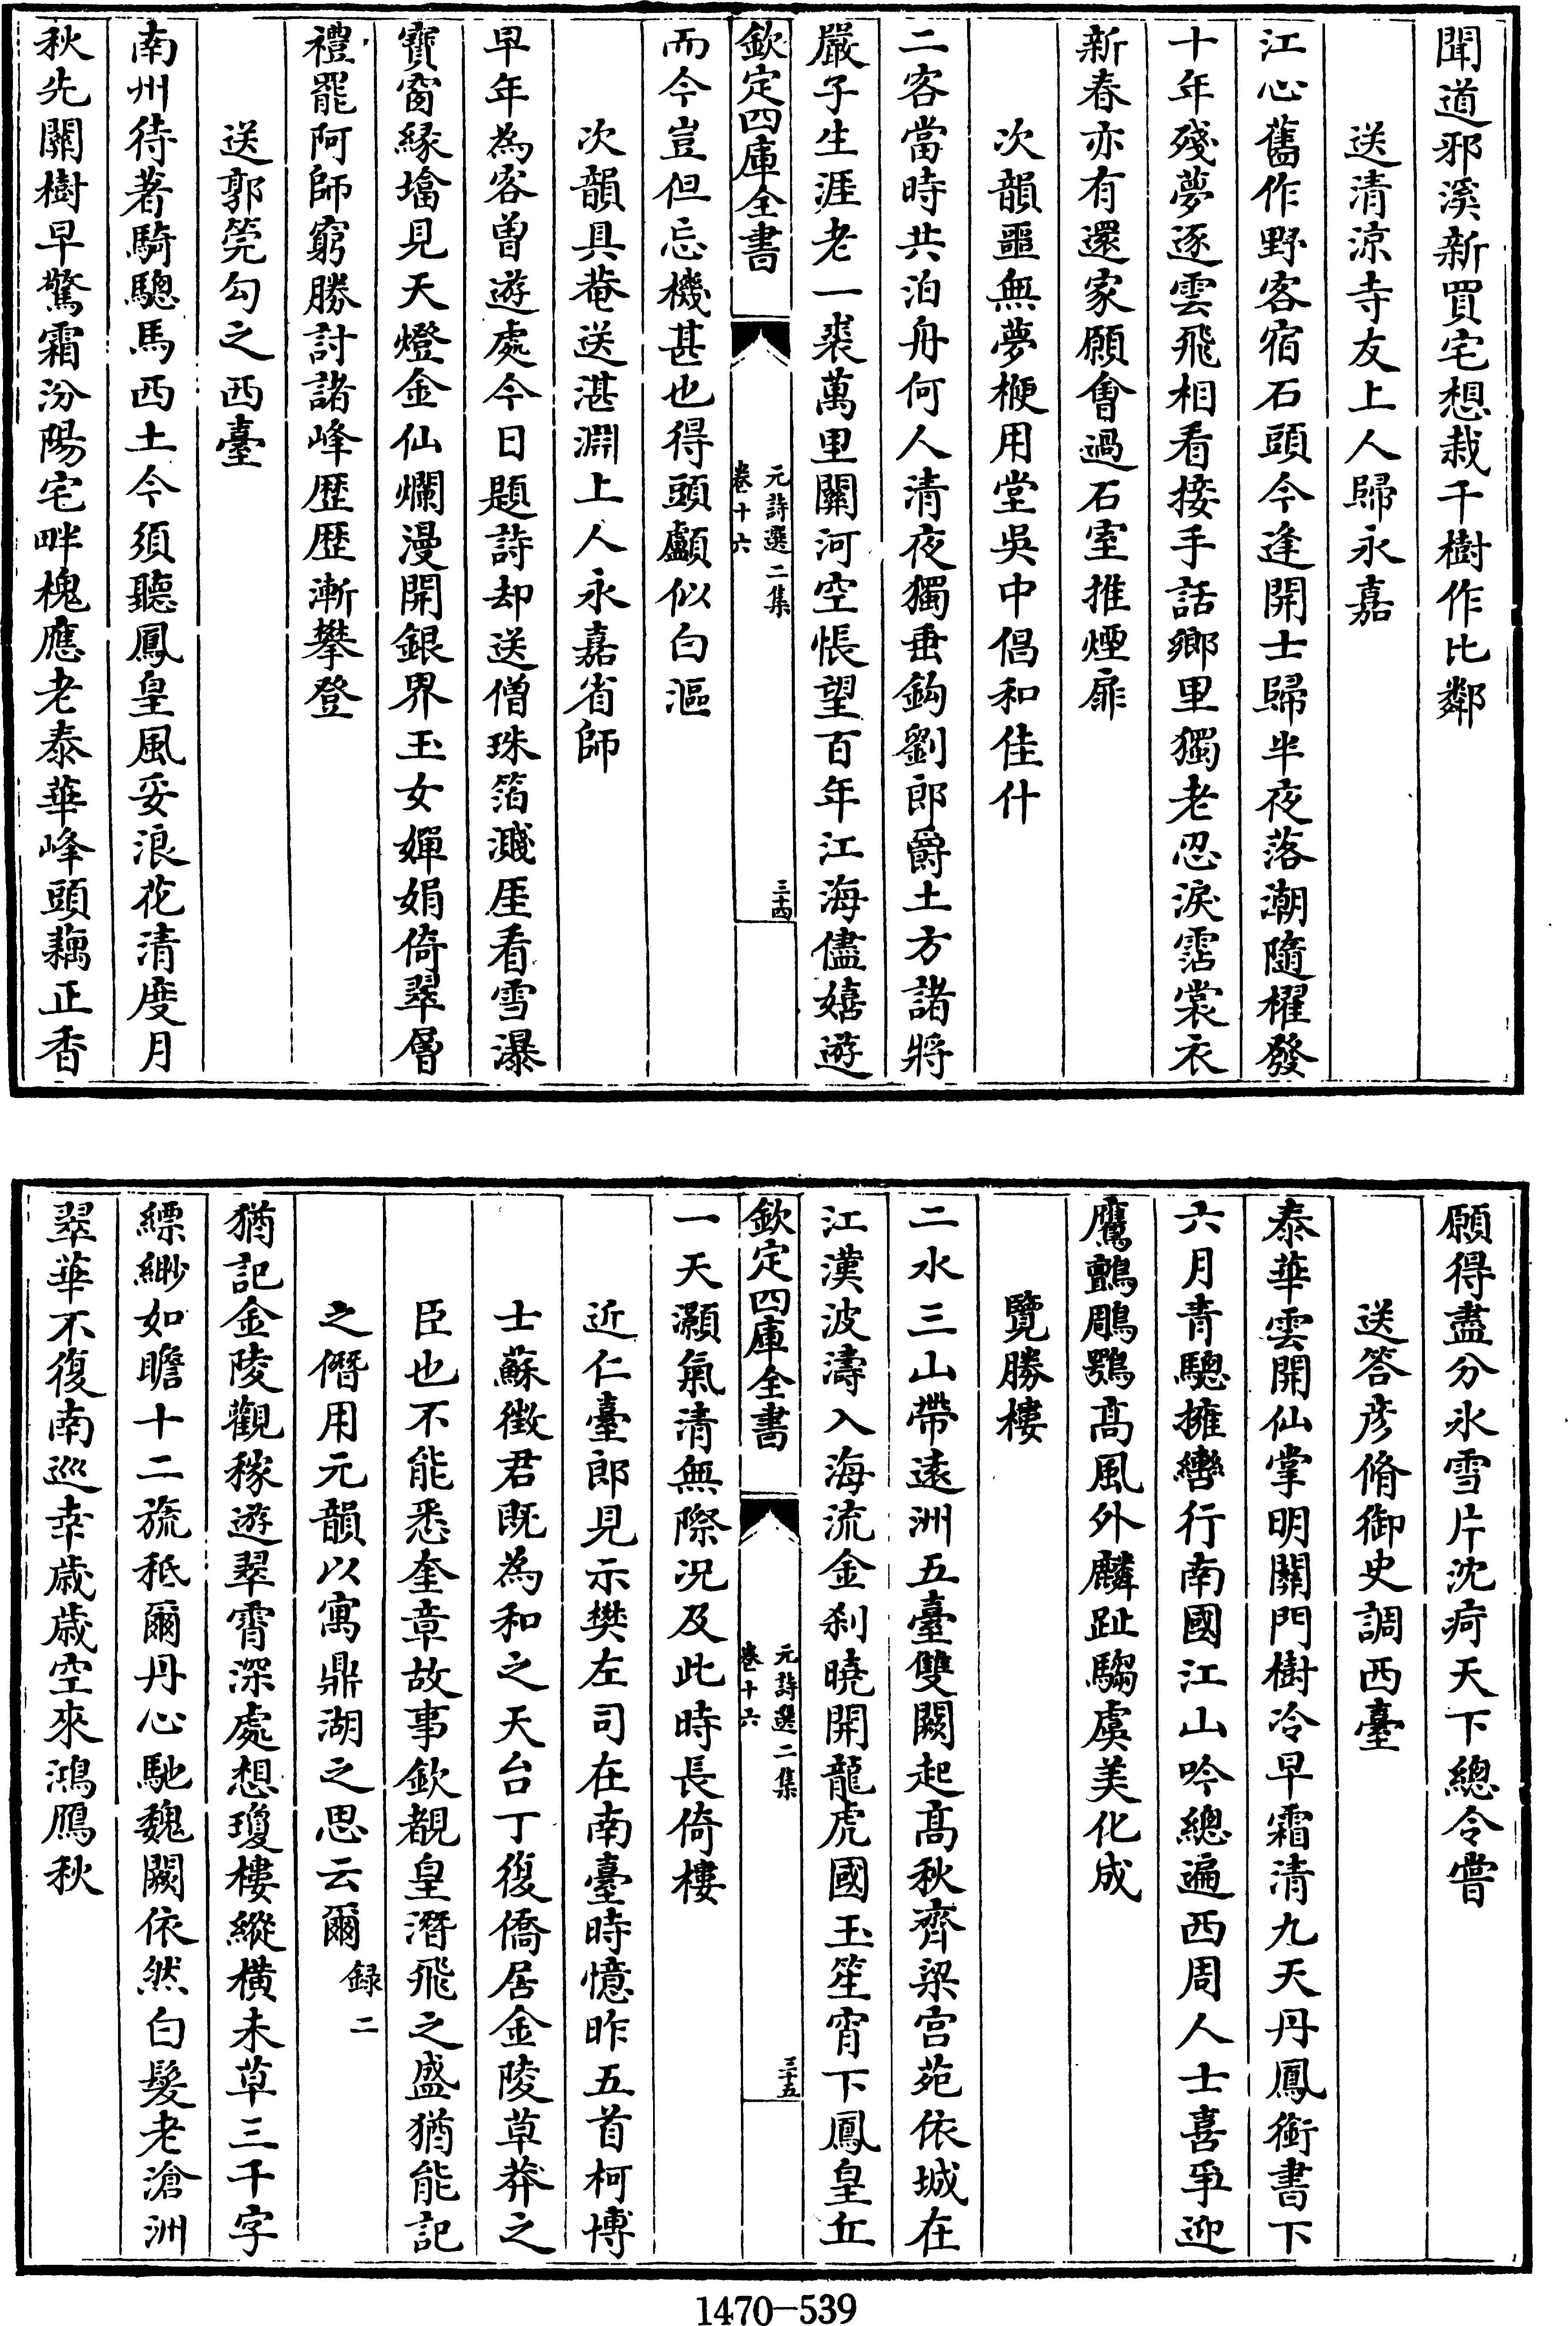 聞道邪溪新買宅想栽千樹作比鄰
送清涼寺友上人歸永嘉
江心舊作野客宿石頭今逢開士歸半夜落潮隨櫂發
十年殘夢逐雲飛相看接手話鄉里獨老忍淚霑裳衣
新春亦有還家願會過石室推煙扉
次韻噩無夢楩用堂吳中倡和佳什
二客當時共泊舟何人清夜獨垂鈎劉郎爵土方諸將
嚴子生涯老一裘萬里關河空悵望百年江海儘嬉遊
欽定四庫全書
元詩選二集
卷十六
三十四
而今豈但忘機甚也得頭顱似白漚
次韻具菴送湛淵上人永嘉省師
早年為客曽遊處今日題詩却送僧珠箔濺厓看雪瀑
寶窗緣壋見天燈金仙爛漫開銀界玉女嬋娟倚翠層
禮罷阿師窮勝討諸峰歴歴漸攀登
送郭筦勾之西臺
南州待著騎驄馬西土今須聽鳳皇風妥浪花清度月
秋先關樹早驚霜汾陽宅畔槐應老泰華峰頭藕正香
願得盡分氷雪片沈疴天下總令嘗
送答彦脩御史調西臺
泰華雲開仙掌明關門樹冷早霜清九天丹鳳銜書下
六月青驄擁轡行南國江山吟總遍西周人士喜爭迎
鷹鸇鵰鶚髙風外麟趾騶虞美化成
覽勝樓
二水三山帶遠洲五臺雙闕起髙秋齊梁宫苑依城在
江漢波濤入海流金刹曉開龍虎國玉笙宵下鳳皇丘
欽定四庫全書
元詩選二集
卷十六
三十五
一天灝氣清無際况及此時長倚樓
近仁臺郎見示樊左司在南臺時憶昨五首柯博
士蘇徴君既為和之天台丁復僑居金陵草莽之
臣也不能悉奎章故事欽覩皇潛飛之盛猶能記
之僭用元韻以寓鼎湖之思云爾 録二
猶記金陵觀稼遊翠霄深處想瓊樓縱橫未草三千字
縹緲如瞻十二旒秪爾丹心馳魏闕依然白髮老滄洲
翠華不復南巡幸歳歳空來鴻鴈秋
1470—539